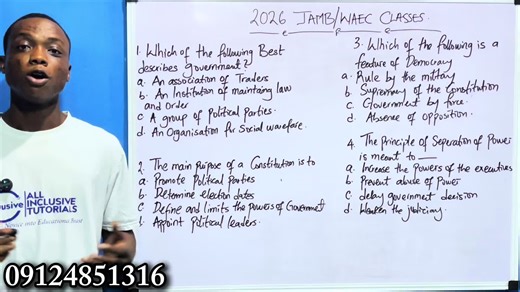 2026 JAMB/WAEC CLASSES.
1. Which of the following Best
describes government?
a. An association of Traders
b. An Institution of maintaing law
and order
c. A group of Political parties.
d. An Organisation for Social warefare.
2. The main purpose of a Constitution is to
a. Promote Political parties
b. Determine election dates
c. Define and limits the powers of Government
d. Appoint Political leaders.
3. Which of the following is a
feature of Democracy
a. Rule by the military
b. Supremacy of the Constitution
c. Government by force.
d. Absence of opposition.
4. The Principle of Seperation of Power
is meant to
a. Increase the Powers of the executives
b. Prevent abuse of Power
c. delay government decision
d. Weaken the judiciary.
ALL
INCLUSIVE
TUTORIALS
09124851316